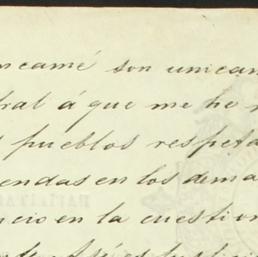 ncamé son unicam
tral á que me he
pueblos respeta
endas en los dema
ncio en la cuestion